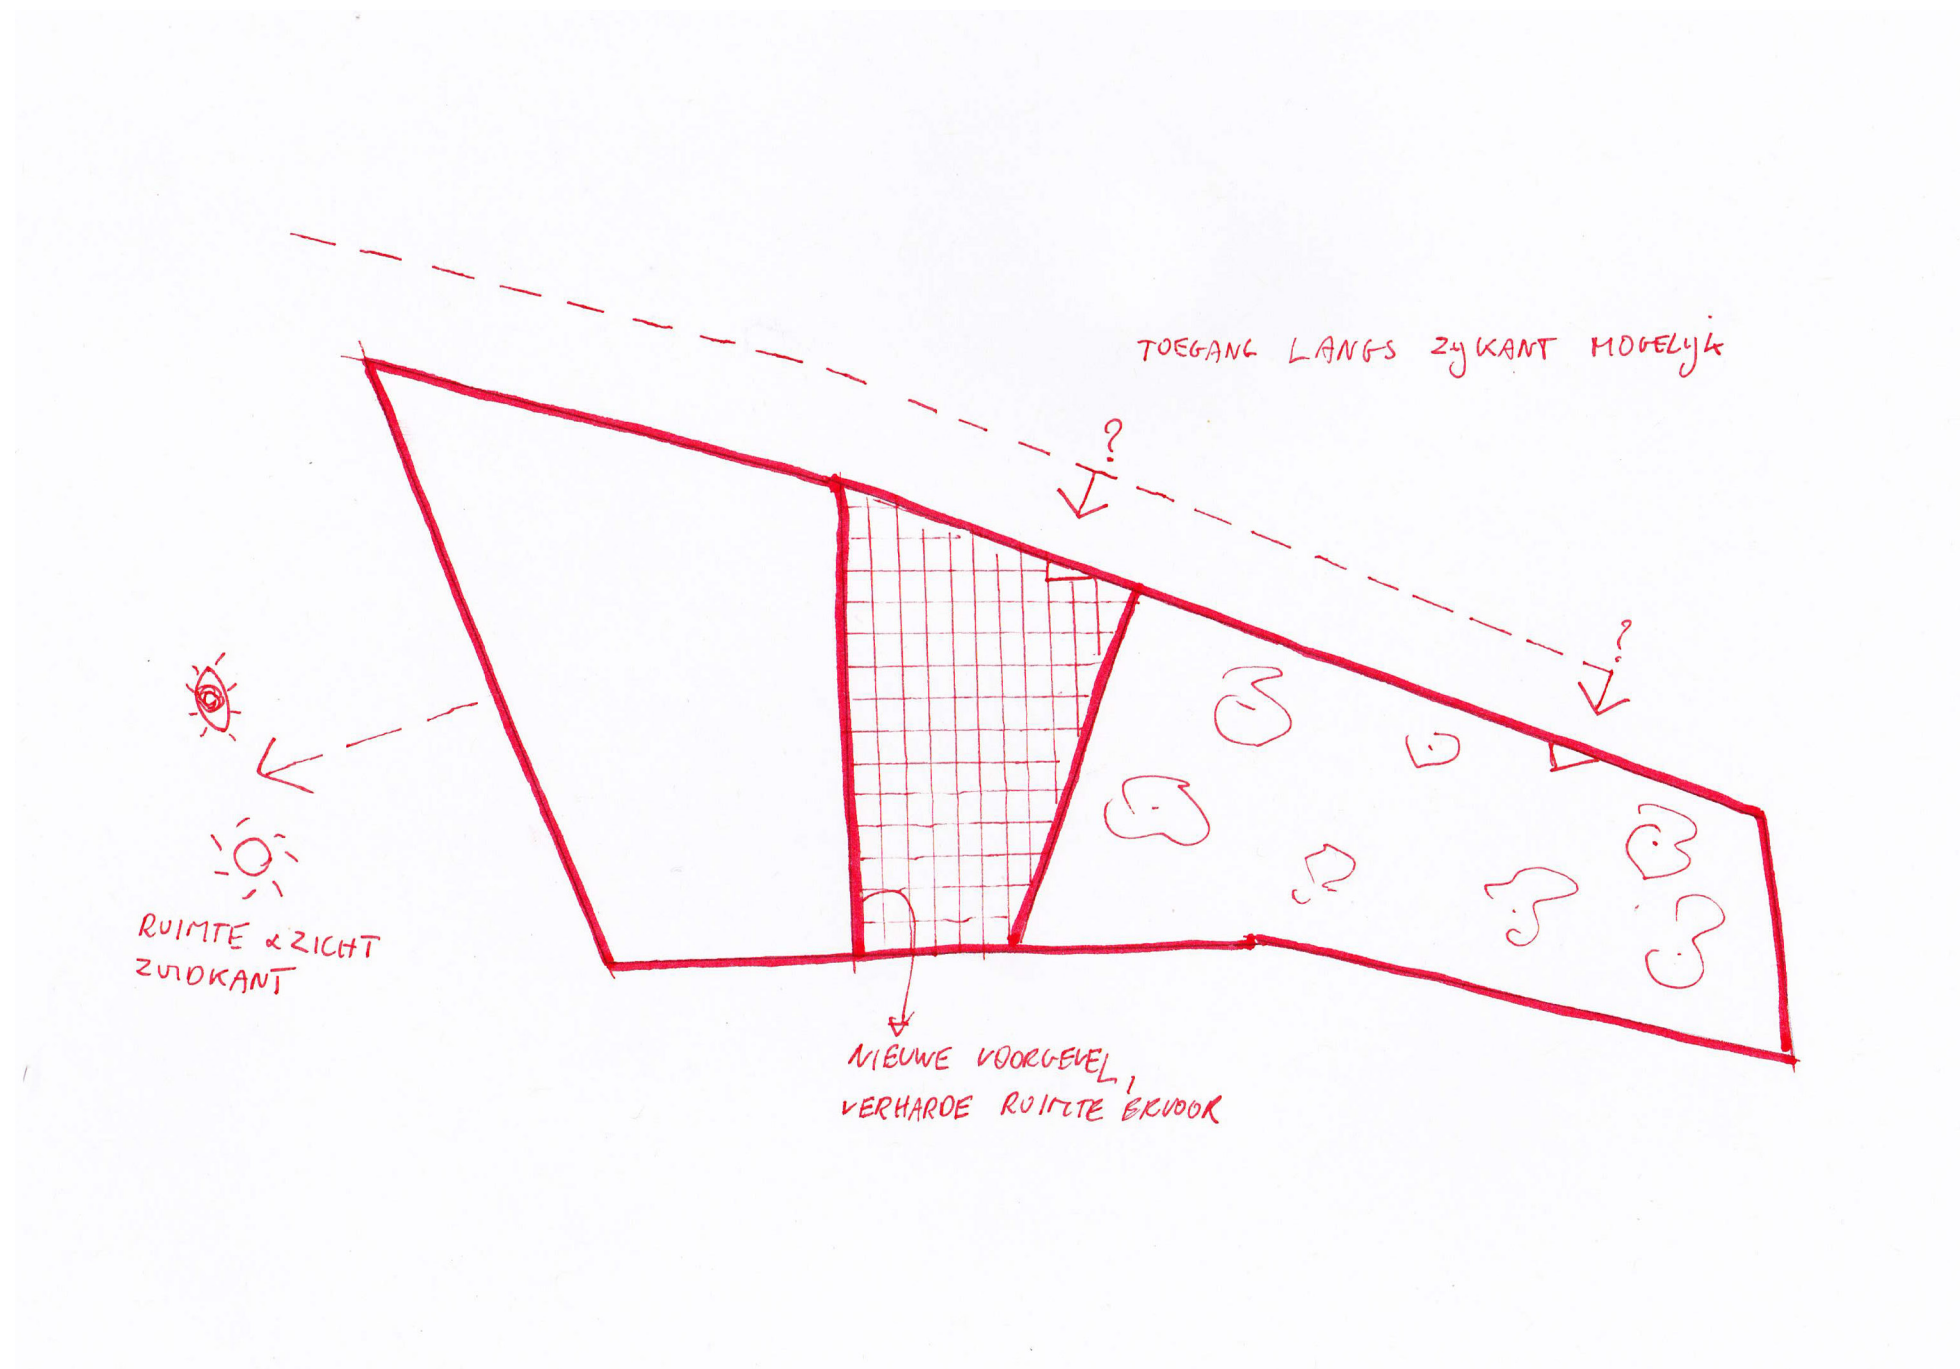 TOEGANG LANGS ZIJKANT MOGELIJK
?
?
RUIMTE & ZICHT
ZUIDKANT
NIEUWE VOORGEVEL,
VERHARDE RUIMTE ERVOOR